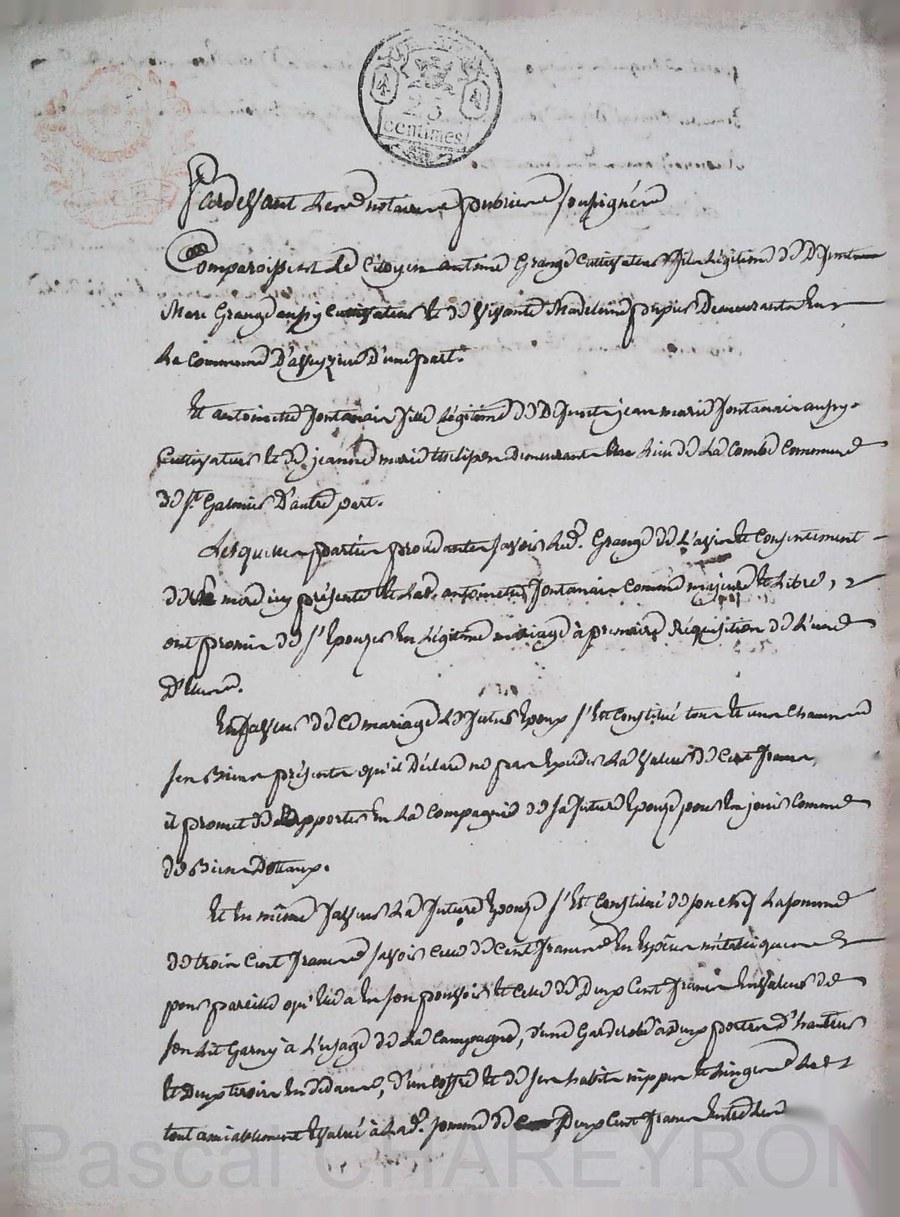 25
centimes
Pardevant les notaires publics soussignés
Comparoissent le Citoyen antoine Grange Cultivateur fils légitime de Defunt
Marc Grange aussy Cultivateur et de vivante Madeleine pupier Demeurante en
la Commune D'aveyzieu D'une part.
Et antoinette fontanais fille légitime de Defunt jean marie fontanais aussy
Cultivateur et de jeanne marie Demeurante au Lieu de la Combe Commune
de St. Galmier D'autre part.
Lesquelles parties procedantes savoir led. Grange de l'avis et Consentement
de sa mere icy présente et lad. antoinette fontanais comme majeure et libre,
ont promis de s'épouser en légitime mariage à premiere Réquisition de l'une
D'elles.
En faveur de ce mariage le futur époux s'est Constitué tous et uns chacuns
ses Biens présents qu'il Déclare ne pas exceder la valeur de Cent francs,
il promet de apporter en la Compagnie de sa future épouse pour en jouir comme
de Biens Dottaux.
Et en même faveur la future épouse s'est Constitué de son chef la somme
de trois Cent francs savoir celle de Cent francs en espèces métalliques
pour pareille qu'elle a en son pouvoir et celle de Deux Cent francs en valeur de
son lit Garny à l'usage de la Campagne, d'une Garderobe à deux portes d'hauteur
et Deux tiroirs en dedans, d'un coffre et de ses habits nippes et linges le
tout amiablement évalué à lad. somme de Deux Cent francs entre les
Pascal CHAREYRON